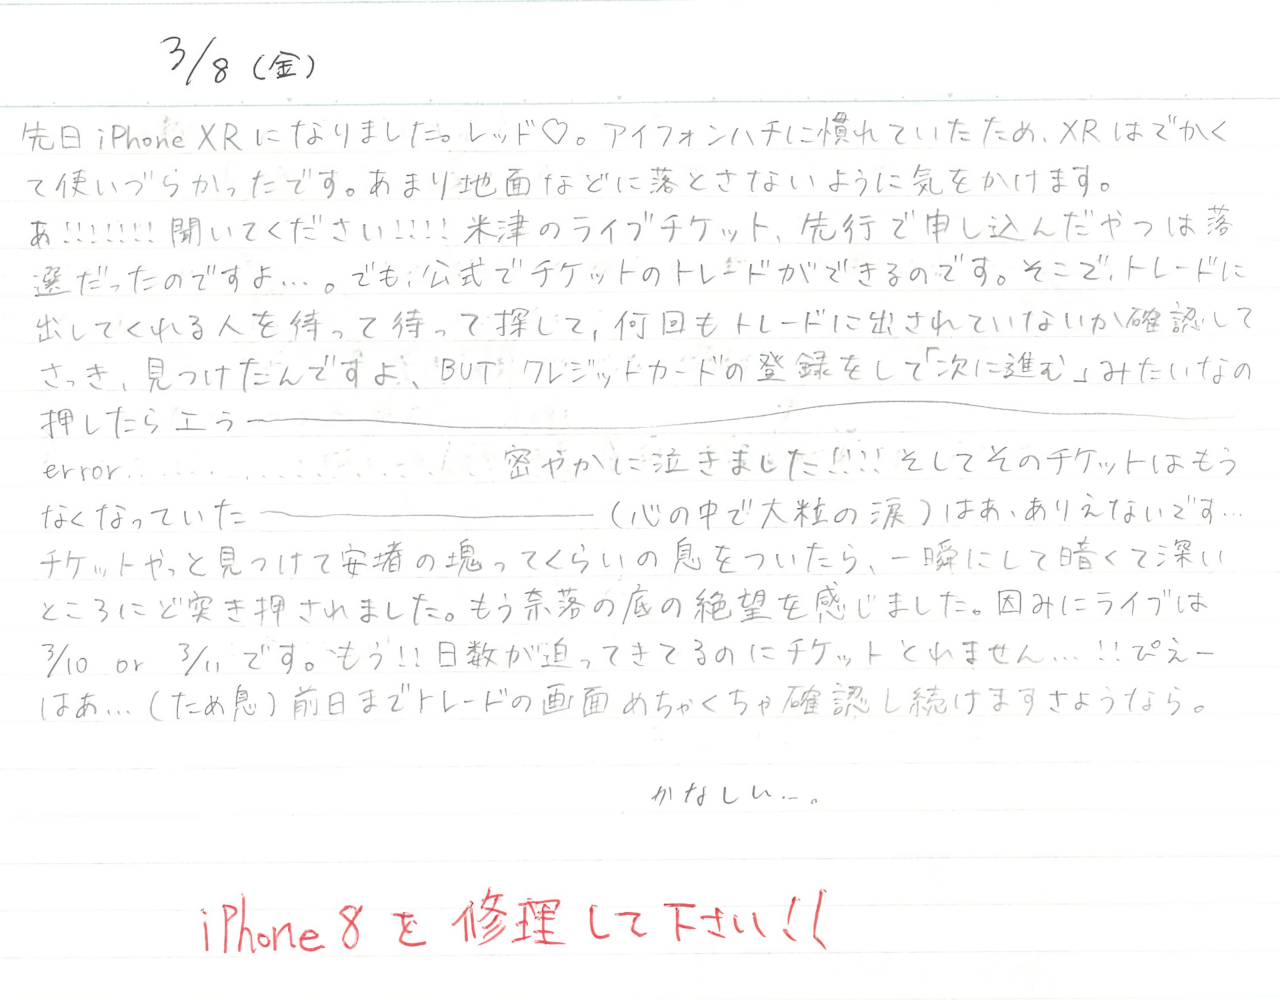 3/8(金)
先日iPhone XRになりました。レッド♡。アイフォンハチに慣れていたため、XRはでかく
て使いづらかったです。あまり地面などに落とさないように気をかけます。
あ!!!!!!!聞いてください!!!!米津のライブチケット、先行で申し込んだやつは落
選だったのですよ…。でも、公式でチケットのトレードができるのです。そこで、トレードに
出してくれる人を待って待って探して、何回もトレードに出されていないか確認して
さっき、見つけたんですよ、BUT クレジットカードの登録をして「次に進む」みたいなの
押したらエラー
error…… 密やかに泣きました!!!!そしてそのチケットはもう
なくなっていたー(心の中で大粒の涙)はあ、ありえないです…
チケットやっと見つけて安堵の塊ってくらいの息をついたら、一瞬にして暗くて深い
ところにど突き押されました。もう奈落の底の絶望を感じました。因みにライブは
3/10 or 3/11です。もう!!日数が迫ってきてるのにチケットとれません…!!ぴえー
はあ…(ため息)前日までトレードの画面めちゃくちゃ確認し続けますさようなら。
かなしい…。
iPhone8を修理して下さい!!